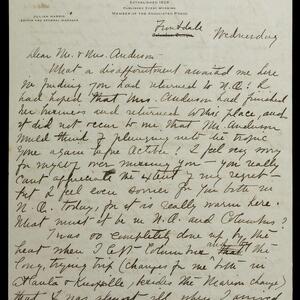 ESTABLISHED 1828
PUBLISHED EVERY MORNING
MEMBER OF THE ASSOCIATED PRESS
JULIAN HARRIS
EDITOR AND GENERAL MANAGER
Wednesday
Dear Mr. & Mrs. Anderson:
What a disappointment awaited me here
in finding you had returned to N.O.! I
had hoped that Mrs. Anderson had finished
her business and returned to this place, and
it did not occur to me that Mr. Anderson
would think of plunging into the tropic
zone again before October. I feel very sorry
for myself over missing you — you really
can't appreciate the extent of my regret —
but I feel even sorrier for you both in
N.O. today, for it is really warm here.
What must it be in N.O. and Columbus?
I was so completely done up by the
heat when I left Columbus and the
long, trying trip (changes for me both in
Eufaula & , besides the change)
that I was almost ill when I arrived